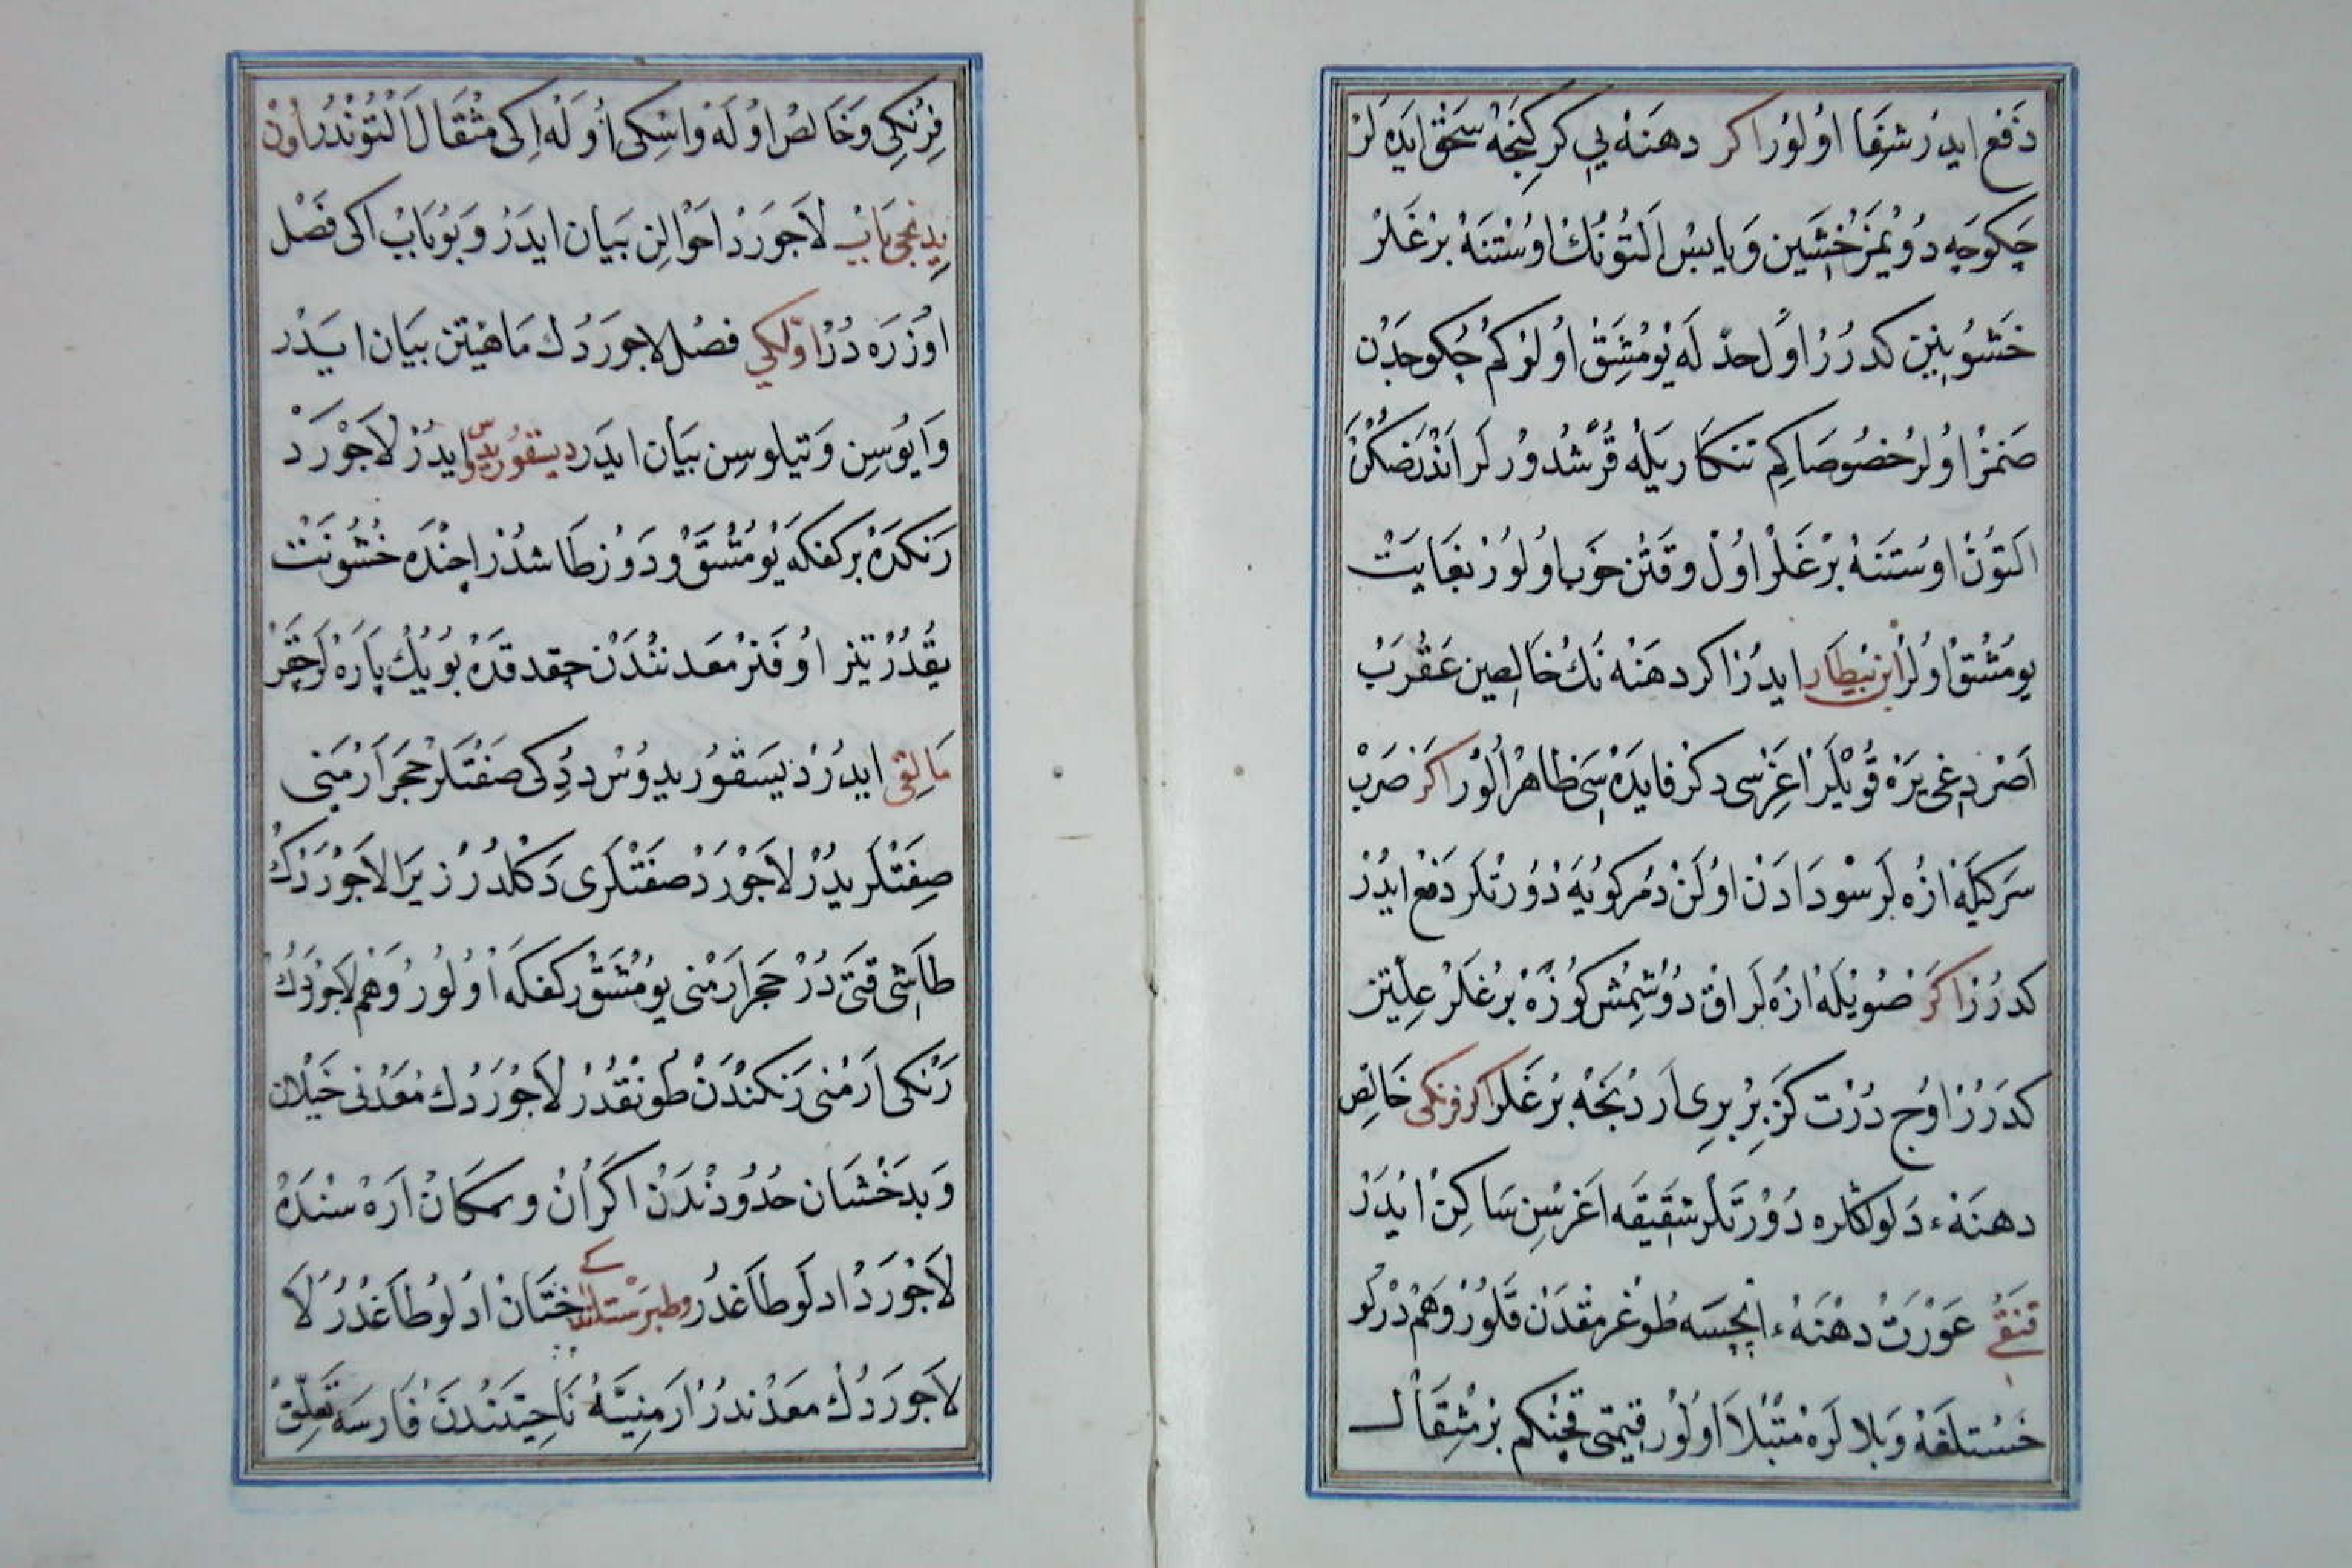 دَفع ايدر شفَا اولور اكر دهنه يي كر كنجه سحق ايده لر
چكوجه دوْيمز خشين وَ يابس التونك اوستنه برغلر
خشوبنين كدرر اول حد له يومشق اولر كم چكوجدن
صنمز اولر خصوصا كم تنكار يله قرشدورلر اندنصكره
التون اوستنه برغلر اول وقتن خوب اولور بغايت
يومشق اولر ابن بيطار ايدر اكر دهنه نك خالصين عقرب
اصردغى يره قويلر اغرسى دكر فايده سى ظاهر الور اكر صرب
سركيله ازه لر سودادن اولن دمركويه دورتلر دفع ايدر
كدرر اكر صويله ازه لر اق دوشمش كوزه برغلر علتين
كدرر اوج درت كز بربرى اردنجه برغلر اكر فرنكى خالص
دهنهء دلولكلره دورتلر شقيقه اغرسن ساكن ايدر
قنقى عورت دهنهء ايچسه طوغرمقدن قلور وهم درلو
خستلغه وبلالره مبتلا اولور قيمتى قچنكم بر مثقال
فرنكى وخالص اوله واسكى اوله اكى مثقال التوندر اون
يدنجى باب لاجورد احوالن بيان ايدر وبو باب اكى فصل
اوزره در اولكي فصل لاجوردك ماهيتن بيان ايدر
وايوسن وتيلوسن بيان ايدر ديسقوريدوس ايدر لاجورد
رنكده بر كفكه يومشق ودوز طاشدر اچنده خشونت
يقدر تيز اوفنر معدنندن چقدقده بويك پاره لر چقر
مالقى ايدر ديسقوريدوس ددكى صفتلر حجر ارمنى
صفتلريدر لاجورد صفتلرى دكلدر زيرا لاجوردك
طاشى قتى در حجر ارمنى يومشق كفكه اولور وهم لاجوردك
رنكى ارمنى رنكندن طونقدر لاجوردك معدنى خيلان
وبدخشان حدودندن اكران وسمكان اره سنده
لاجورد ادلو طاغدر وطبرستانده كى ختان ادلو طاغدر لا
لاجوردك معدندر ارمنيه ناحيتندن فارسه تعلق